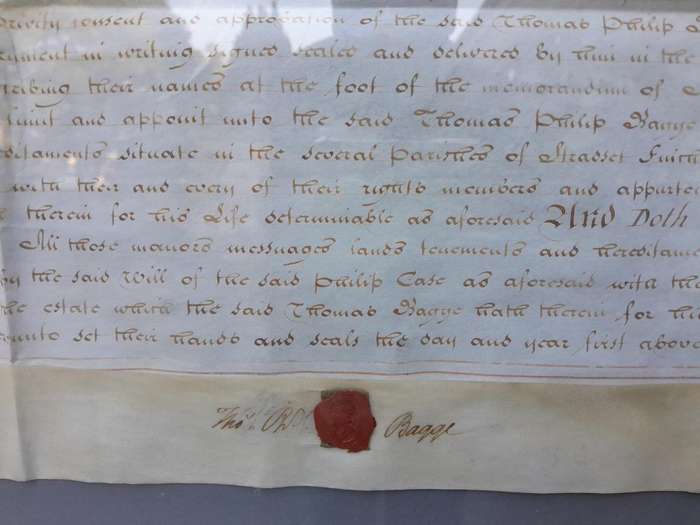 privity consent and approbation of the said Thomas Philip
ument in writing signed sealed and delivered by him in the
ribing their names at the foot of the memorandum of
limit and appoint unto the said Thomas Philip Bagge
ditaments situate in the several Parishes of Stradset Finch
with their and every of their rights members and apparte
therein for his Life determinable as aforesaid And Doth
All those manors messuages lands tenements and hereditame
by the said Will of the said Philip Case as aforesaid with the
the estate which the said Thomas Bagge hath therein for his
unto set their hands and seals the day and year first above
Thos. Bagge